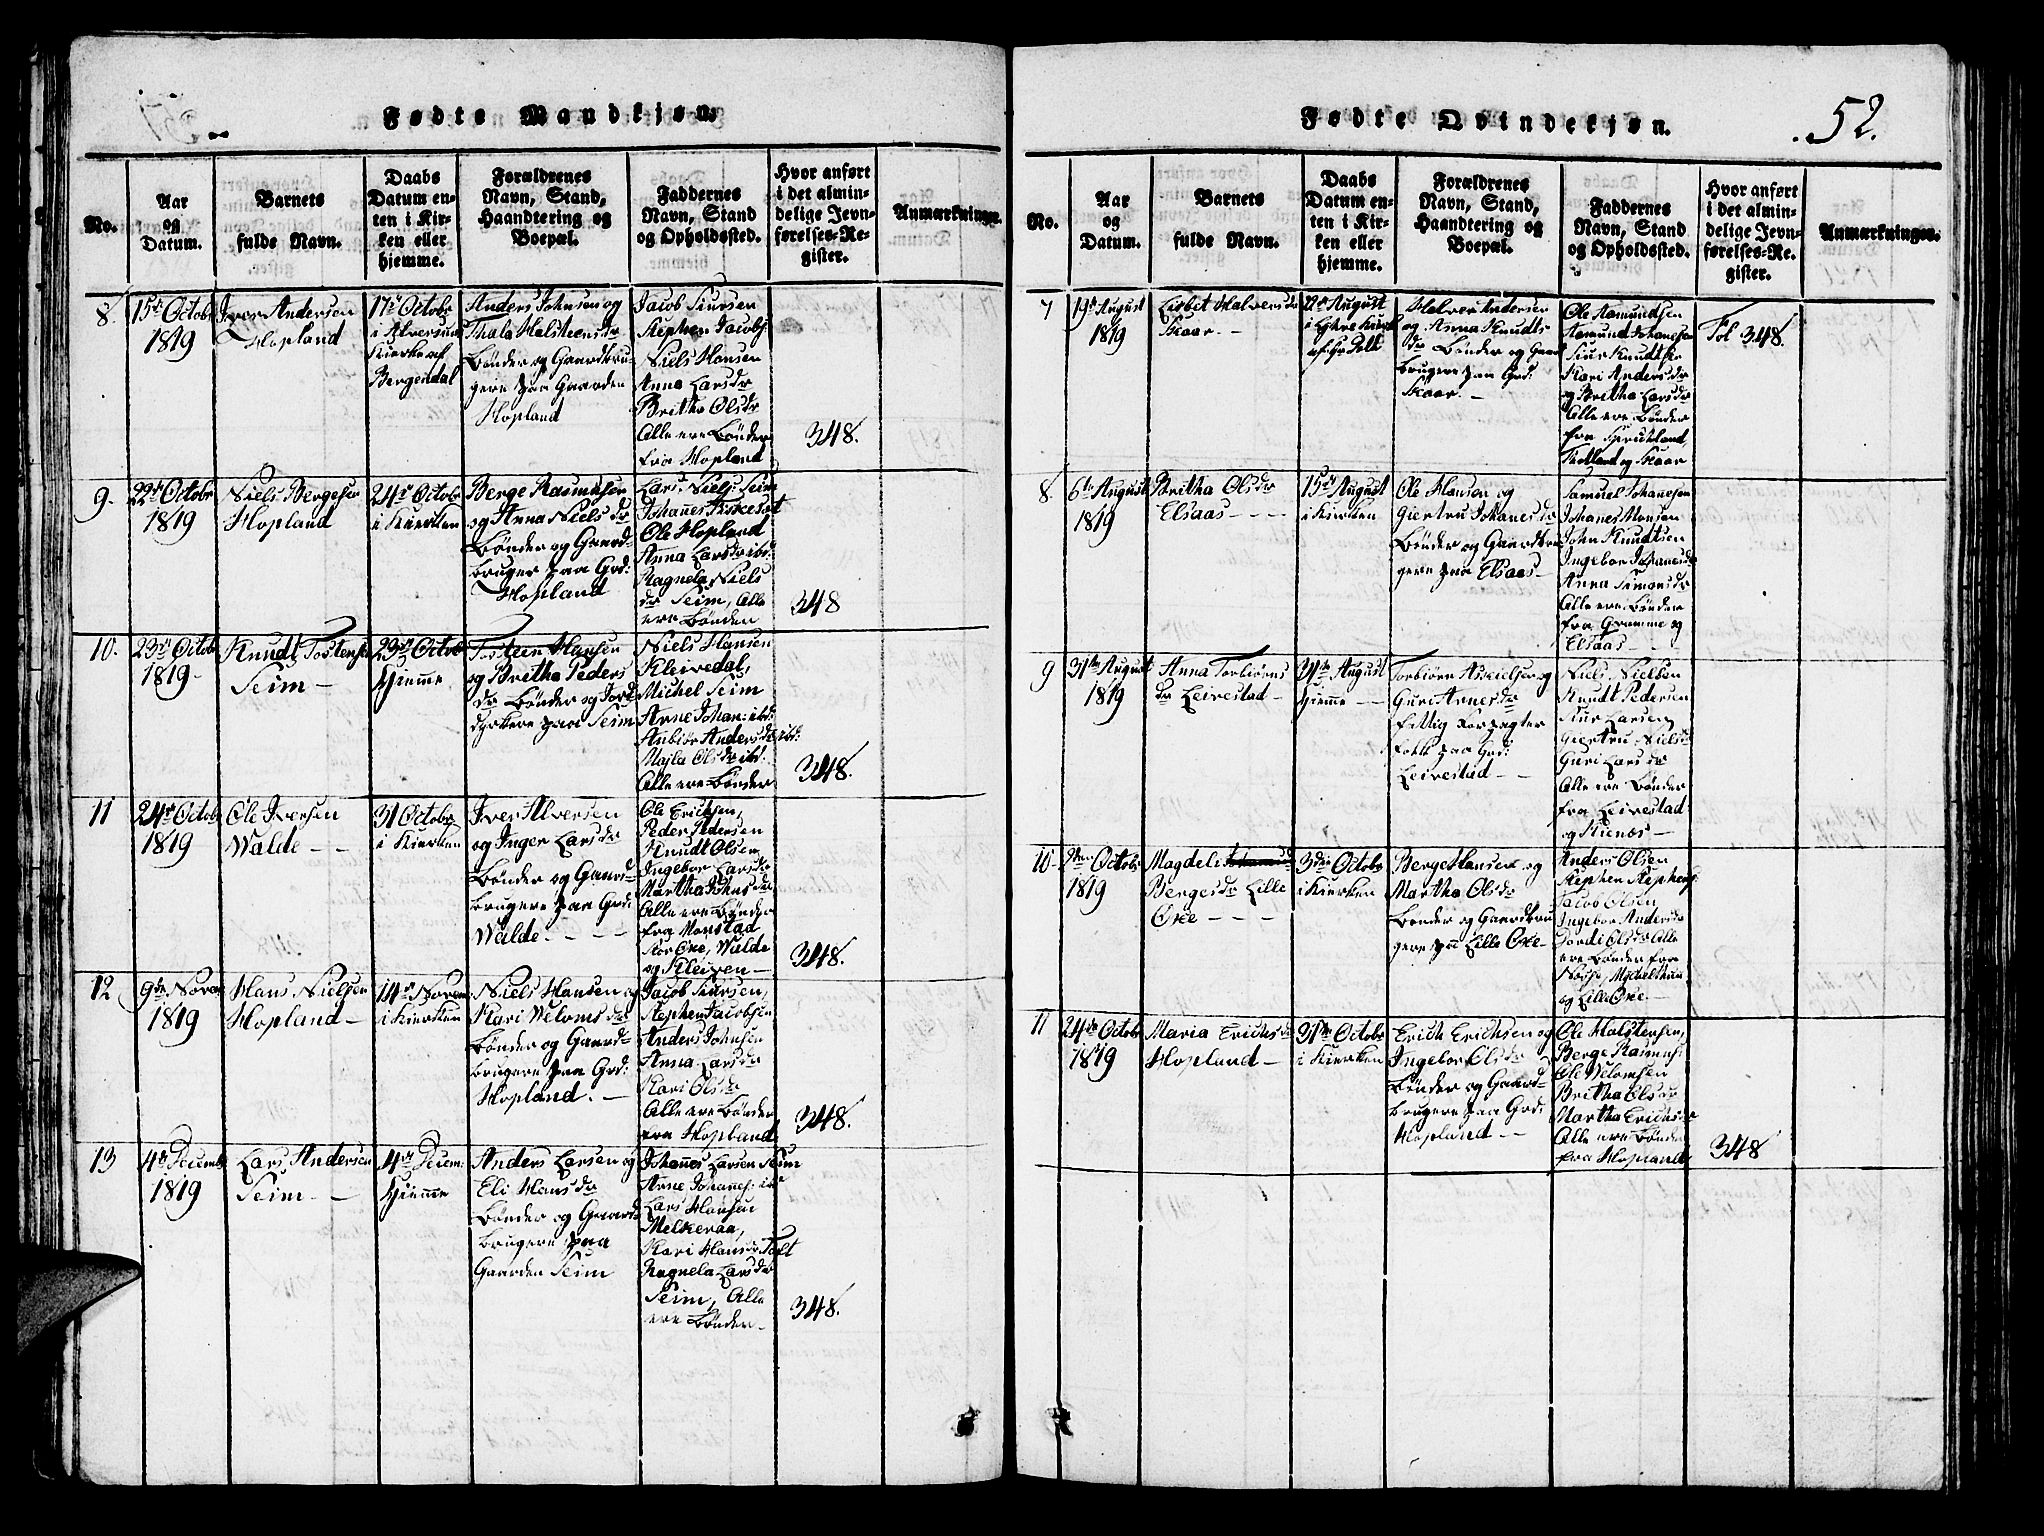 Fødte Mandkjøn.
No.
Aar
og
Datum.
Barnets
fulde Navn.
Daabs
Datum en-
ten i Kir-
ken eller
hjemme.
Forældrenes
Navn, Stand,
Haandtering og
Boepæl.
Faddernes
Navn, Stand
og Opholdssted.
Hvor anført
i det almin-
delige Jevn-
førelses-Re-
gister.
Anmærkninger.
8.
15de Octobr
1819
Iver Andersen
Hopland
17de Octobr
i Alversund
Kierke af
Bergendal
Anders Johnsen og
Thala Halsteensdr
Bønder og Gaardbru-
gere paa Gaarden
Hopland
Jacob Siursen
Stephen Jacobs:
Niels Hansen
Anna Larsdr
Britha Olsdr
Alle ere Bønder
fra Hopland
348.
9.
22de Octobr
1819
Niels Bergesen
Hopland
24de Octobr
i Kierken
Berge Rasmusen
og Anna Niels dr
Bønder og Gaard-
bruger paa Grd:
Hopland
Lars Niels: Seim
Johanes
Ole Hopland
Anna Larsdr ibd:
Ragnela Niels
dr Seim, Alle
ere Bønder
348
10.
23de Octobr
1819
Knudt Tostensen
Seim
23de Octobr
Hjemme
Tosten Hansen
og Britha Peders
dr Bønder og Jord
dyrkere paa Seim
Niels Hansen
Kleivedal,
Michel Seim
Arne Johan: ibd:
Anbiør Andersdr ibd:
Majla Olsdr ibd:
Alle ere Bønder
348.
11
24de Octobr
1819
Ole Iversen
Walde
31 Octobr
i Kierken
Iver Alversen
og Inger Larsdr
Bønder og Gaard-
brugere paa Grd:
Walde
Ole Erichsen,
Peder Pedersen
Knudt Olsen
Ingebor Larsdr
Martha Johnsdr
Alle ere Bønder
fra Monstad
Stor Oxe, Walde
og Kleiven
348.
12
9de Novem
1819
Hans Nielsen
Hopland
14de Novem
i Kierken
Niels Hansen og
Kari Weloms dr
Bønder og Gaard-
brugere paa Grd:
Hopland.
Jacob Siursen,
Stephen Jacobsen
Anders Johnsen
Anna Larsdr
Kari Olsdr
Alle ere Bønder
fra Hopland
348.
13
4de Decemb
1819
Lars Andersen
Seim
4de Decem
Hjemme
Anders Larsen og
Eli Hans dr
Bønder og Gaard-
brugere paa
Gaarden Seim
Johannes Larsen Seim
Arne Johanes:
Lars Hansen
Melkeraa,
Kari Hansdr Toft
Ragnela Larsdr
Seim, Alle
ere Bønder
348.
Fødte Qvindekjøn.
52.
No.
Aar
og
Datum.
Barnets
fulde Navn.
Daabs
Datum en-
ten i Kir-
ken eller
hjemme.
Forældrenes
Navn, Stand,
Haandtering og
Boepæl.
Faddernes
Navn, Stand
og Opholdssted.
Hvor anført
i det almin-
delige Jevn-
førelses-Re-
gister.
Anmærkninger.
7
19de August
1819
Lisbet Halversdr
Skaar.
August
Halver Andersen
og Anna Knudts
dr Bønder og Gaard
brugere paa Grd:
Skaar.
Ole Aamundsen
Aamund Johanesen
Siur Knudtsen
Kari Andersdr
og Britha Larsdr
Alle ere Bønder
fra
og Skaar
Fol 348.
8.
6te August
1819
Britha Olsdr
Elsaas
15de August
i Kierken
Ole Hansen og
Giertru Johanesdr
Bønder og Gaardbru
gere paa Elsaas
Samuel Johanesen
Johanes Monsen
John Knudtsen
Ingebor Johanesdr
Anna Simonsdr
Alle ere Bønder
fra Gramme og
Elsaas
9
31te August
1819
Anna Torbiørns
dr Leirestad
31te August
Hjemme
Torbiørn Askielsen og
Guri Arnesdr
fattig Forpagter
Folk paa Grd:
Leirestad
Niels Nielsen
Knudt Pedersen
Siur Larsen
Giertru Nielsdr
Guri Larsdr
Alle ere Bønder
fra Leirestad
og
10.
2den Octobr
1819
Magdeli
Bergesdr Lille
Oxe
3die Octobr
i Kierken
Berge Hansen og
Martha Olsdr
Bønder og Gaardbru
gere paa Lille Oxe
Anders Olsen
Stephen Stephens:
Jacob Olsen
Ingebor Andersdr
Jordi Olsdr Alle
ere Bønder fra
og Lille Oxe
11
24de Octobr
1819
Maria Erichsdr
Hopland
31te Octobr
i Kierken
Erich Erichsen og
Ingebor Olsdr
Bønder og Gaard-
brugere paa Grd:
Hopland
Ole Halstensen,
Berge Rasmus:
Ole Welomsen
Britha Olsdr
Martha Erichsdr
Alle ere Bønder
fra Hopland
348